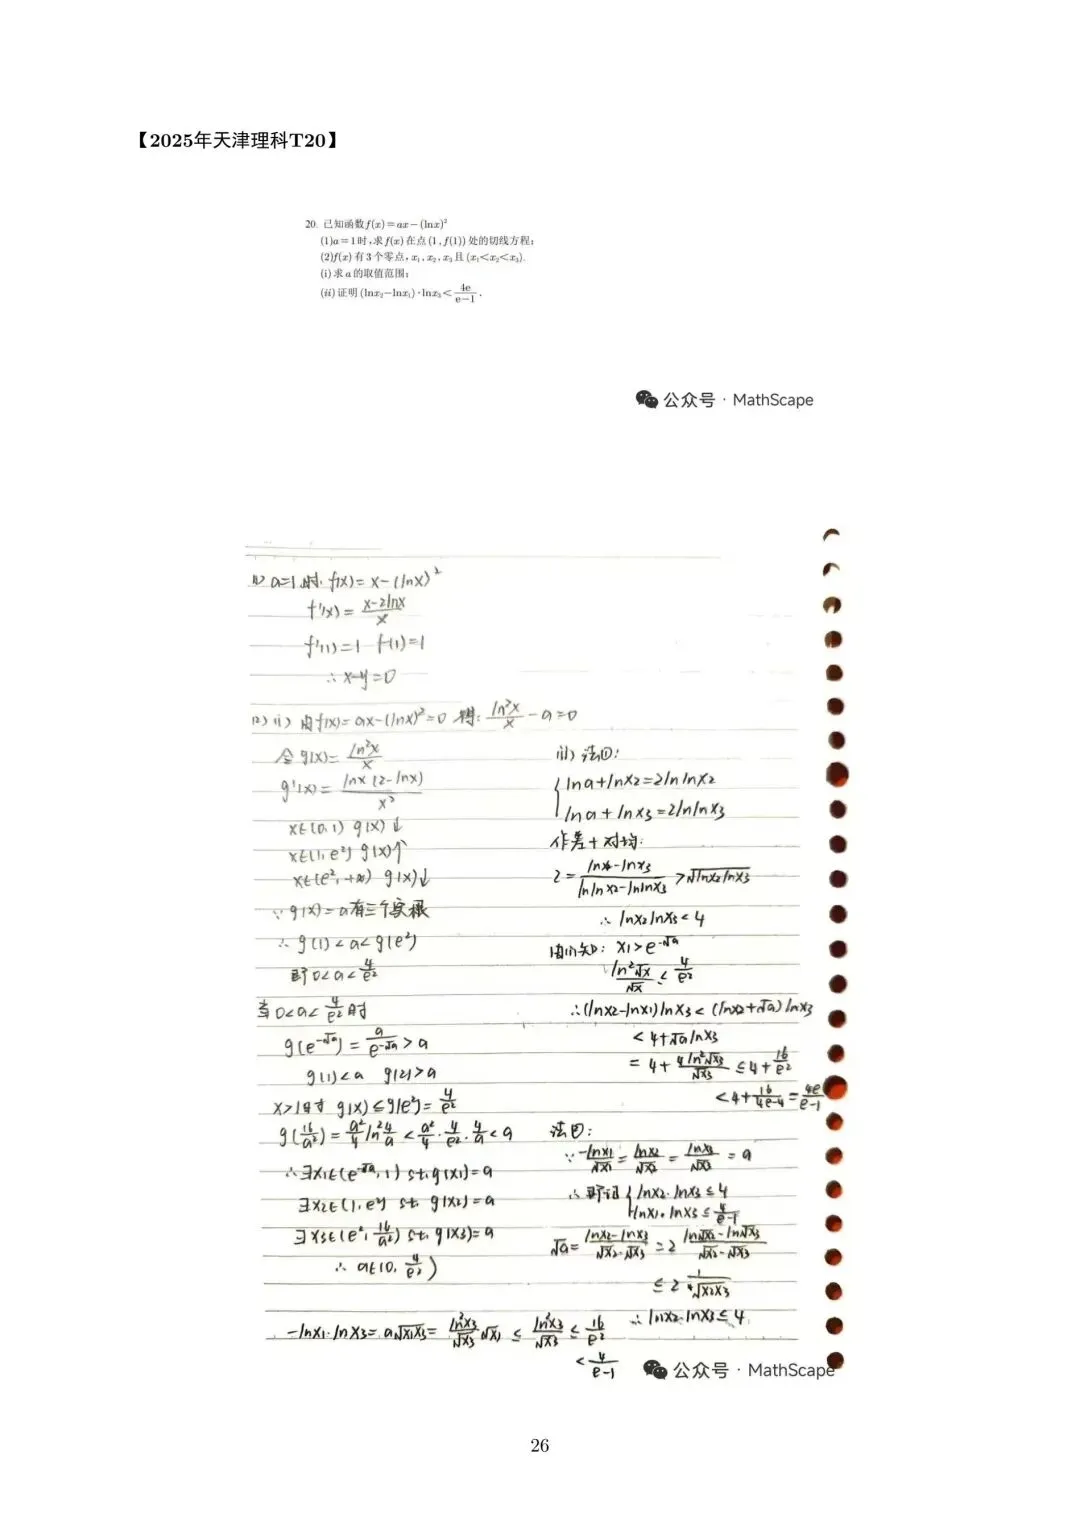 【2025年天津理科T20】
20. 已知函数f(x)=ax-(lnx)²
(1)a=1时,求f(x)在点(1,f(1))处的切线方程;
(2)f(x)有3个零点,x₁,x₂,x₃且(x₁<x₂<x₃).
(i)求a的取值范围;
(ii)证明(lnx₂-lnx₁)·lnx₃<4e/(e-1).
公众号·MathScape
(1) a=1时, f(x)=x-(lnx)²
f'(x)=(x-2lnx)/x
f'(1)=1 f(1)=1
∴x-y=0
(2)(i) 由f(x)=ax-(lnx)²=0 得: ln²x/x-a=0
令g(x)=ln²x/x
g'(x)=lnx(2-lnx)/x²
x∈(0,1) g(x)↓
x∈(1,e²) g(x)↑
x∈(e²,+∞) g(x)↓
∵g(x)=a有三个实根
∴g(1)<a<g(e²)
即0<a<4/e²
当0<a<4/e²时
g(e^(-√a))=a/e^(-√a)>a
g(1)<a g(2)>a
x>1时 g(x)≤g(e²)=4/e²
g(16/a²)=a²/4 ln²4/a<a²/4·4/e²·4/a<a
∴∃x₁∈(e^(-√a),1) s.t. g(x₁)=a
∃x₂∈(1,e²) s.t. g(x₂)=a
∃x₃∈(e²,16/a²) s.t. g(x₃)=a
∴a∈(0,4/e²)
(ii) 法①:
{lna+lnx₂=2lnlnx₂
lna+lnx₃=2lnlnx₃
作差+对均:
2=(lnx₂-lnx₃)/(lnlnx₂-lnlnx₃)>√(lnx₂lnx₃)
∴lnx₂lnx₃<4
由(i)知: x₁>e^(-√a)
ln²√x/√x≤4/e²
∴(lnx₂-lnx₁)lnx₃<(lnx₂+√a)lnx₃
<4+√a lnx₃
=4+4ln²√x₃/√x₃≤4+16/e²
<4+16/(4e-4)=4e/(e-1)
法②:
∵-lnx₁/√x₁=lnx₂/√x₂=lnx₃/√x₃=a
∴即证{lnx₂·lnx₃≤4
-lnx₁·lnx₃≤4/(e-1)
√a=(lnx₂-lnx₃)/(√x₂-√x₃)=2(ln√x₂-ln√x₃)/(√x₂-√x₃)
≤2·1/⁴√(x₂x₃)
∴lnx₂·lnx₃≤4
-lnx₁·lnx₃=a√(x₁x₃)=ln²x₃/√x₃ √x₁≤ln²x₃/√x₃≤16/e²
<4/(e-1)
公众号·MathScape
26